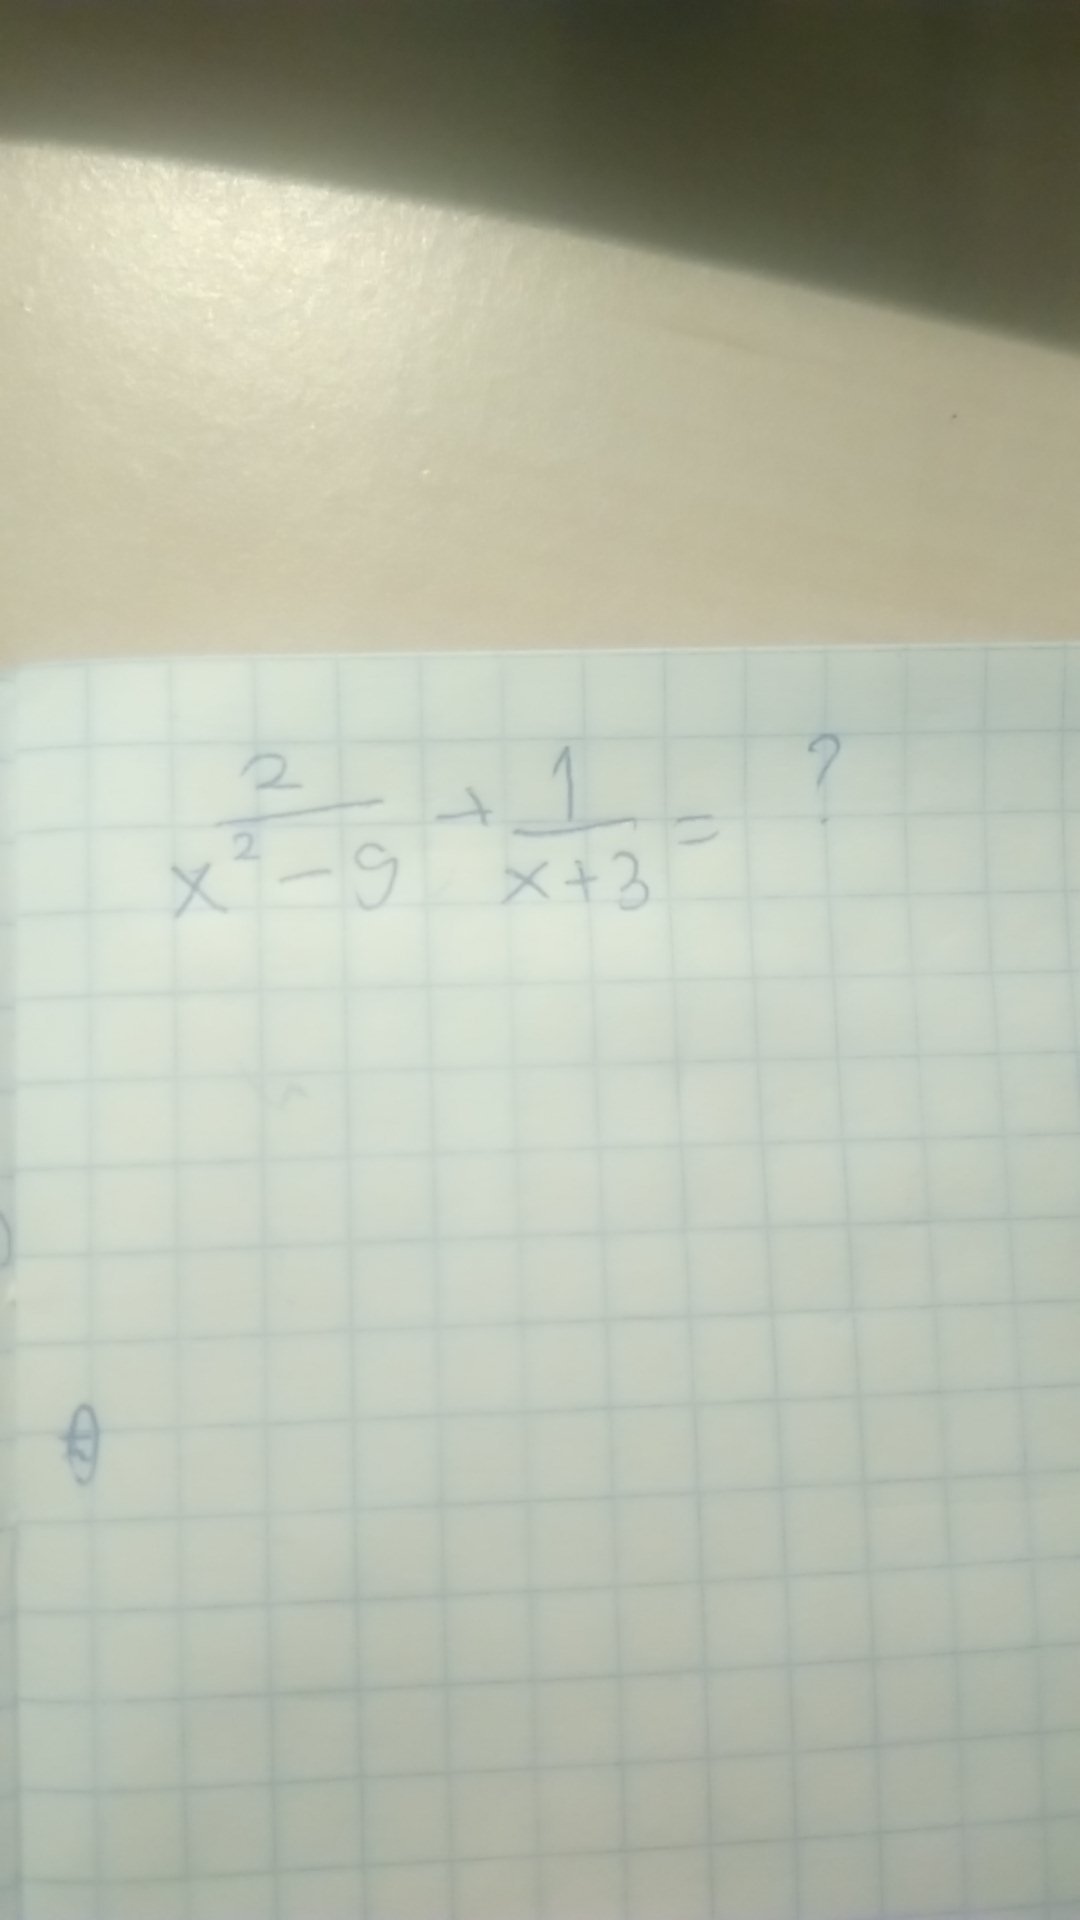 2/(x² - 9) + 1/(x+3) = ?